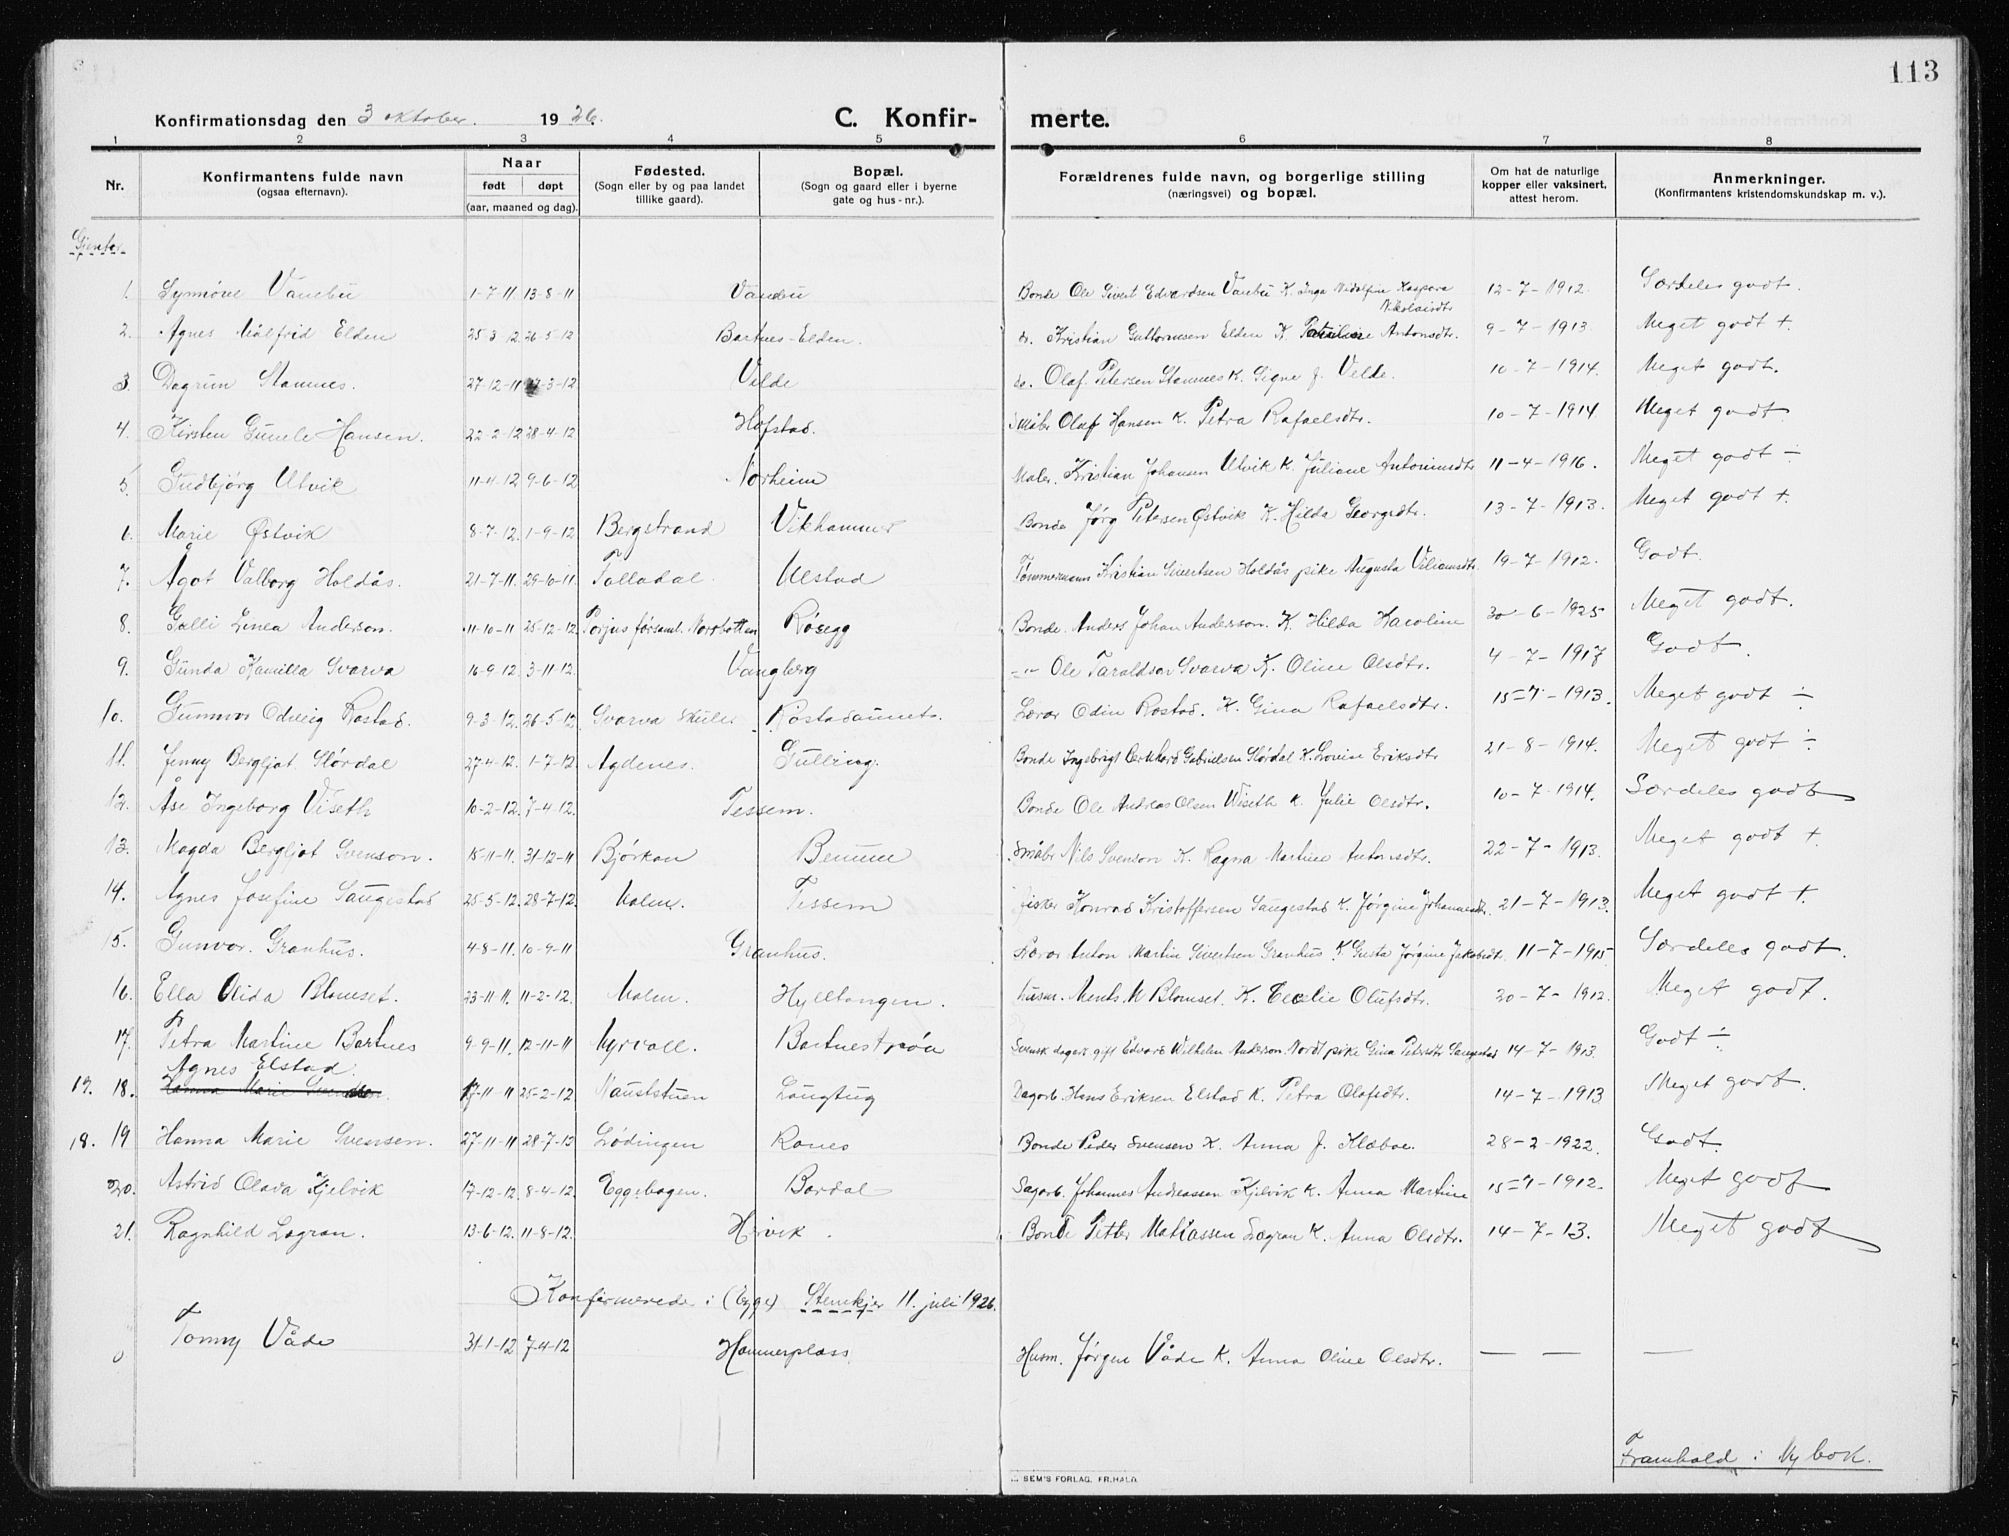 113
Konfirmationsdag den 3 oktober. 1926. C. Konfirmerte.
1 2 3 4 5 6 7 8
Nr. Konfirmantens fulde navn (ogsaa efternavn). Naar født døpt (aar, maaned og dag). Fødested. (Sogn eller by og paa landet tillike gaard). Bopæl. (Sogn og gaard eller i byerne gate og hus-nr.). Forældrenes fulde navn, og borgerlige stilling (næringsvei) og bopæl. Om hat de naturlige kopper eller vaksinert, attest herom. Anmerkninger. (Konfirmantens kristendomskundskap m. v.).
Gjenter.
1. Synnøve Vanebu 1-7-11. 13-8-11 Vanebu Bonde Ole Sivert Edvardsen Vanebu K. Inga Kaspara Nikolaisdtr 12-7-1912. Særdeles godt.
2. Agnes Målfrid Elden 25-3-12. 26-5-12 Bartnes-Elden. Kristian Guttormsen Elden K. Antonsdtr. 9-7-1913. Meget godt +.
3. Dagrun Stamnes. 27-12-11 -3-12 Velde do. Olaf Petersen Stamnes K. Signe J. Velde. 10-7-1914. Meget godt.
4. Kirsten Gunele Hansen. 22-2-12 28-4-12 Hofstad. Småbr Olaf Hansen K. Petra Rafaelsdtr. 10-7-1914 Meget godt
5. Gudbjørg Utvik 11-4-12 9-6-12 Norheim Maler. Kristian Johansen Utvik K. Juliane Antoniusdtr 11-4-1916. Meget godt ÷
6. Marie Østvik 8-7-12. 1-9-12 Bergstrand Vikhammer Bonde Jørg Petersen Østvik K. Hilda Georgsdtr. 13-7-1913. Meget godt +.
7. Ågot Valborg Holdås. 21-7-11. 29-10-11. Følladal. Ulstad Tømmermann Kristian Sivertsen Holdås pike Augusta Viliamsdtr 19-7-1912. Godt
8. Galli Linea Anderson. 11-10-11 25-12-12 Porjus førsaml. Norrbotten Røsegg Bonde. Anders Johan Anderson. K. Hilda Karoline 30-6-1925 Meget godt.
9. Gunda Kamilla Svarva 16-9-12. 3-11-12. Vangberg -"- Ole Taraldsen Svarva K. Oline Olsdtr. 4-7-1917 Godt.
10. Gunnvor Odveig Rostad. 9-3-12. 26-5-12 Svarva skule. Rostadaunet. Lærer Odin Rostad. K. Gina Rafaelsdtr. 15-7-1913. Meget godt ÷
11. Jenny Bergljot Slørdal 27-4-12. 1-7-12 Agdenes. Gulling. Bonde Ingebrigt Gabrielsen Slørdal K. Lovise Eriksdtr 21-8-1914. Meget godt ÷.
12. Åse Ingeborg Viseth 10-2-12. 7-4-12. Tessem. Bonde Ole Andreas Olsen Wiseth K. Julie Olsdtr. 10-7-1914. Særdeles godt
13. Magda Bergljot Svenson. 15-11-11. 31-12-11 Bjørkan Benum Småbr Nils Svenson K. Ragna Martine Antonsdtr. 22-7-1913. Meget godt +
14. Agnes Josefine Saugestad 25-5-12. 28-7-12. Malm. Tessem fisker Konrad Kristoffersen Saugestad K. Jørgine Johannesdtr. 21-7-1913. Meget godt +.
15. Gunvor. Granhus. 4-8-11. 10-9-11 Granhus. Lærer Anton Martin Sivertsen Granhus K. Gusta Jørgine Jakobsdtr 11-7-1915 Særdeles godt.
16. Ella Alida Blomset. 23-11-11. 11-2-12. Malm. Hylltangen. husm. Ments. M Blomset. K. Cecelie Olufsdtr. 20-7-1912. Meget godt.
17. Petra Martine Bartnes 9-9-11. 12-11-11 Myrvoll. Bartnestrøa Svensk dagarb. gift Edvard Wilhelm Anderson Nordt pike Gina Petersdtr Saugestad 14-7-1913. Godt ÷
Agnes Elstad.
19. 18. Hanna Marie Svendsen. 17-11-11 25-2-12. Nauststuen Laugtug Dagarb. Hans Eriksen Elstad K. Petra Olafsdtr. 14-7-1913 Meget godt.
18. 19 Hanna Marie Svensen. 27-11-11 28-7-13 Lødingen Rones Bonde Peder Svensen K. Anna J. Klæboe. 28-2-1922. Godt.
20. Astrid Olava Kjelvik 17-12-12. 8-4-12. Eggebogen. Bardal Sagarb. Johannes Andreassen Kjelvik K. Anna Martine 15-7-1912. Meget godt
21. Ragnhild Lægran. 13-6-12. 11-8-12. Hjvik. Bonde Petter Matiassen Lægran K. Anna Olsdtr. 14-7-13. Meget godt
Konfirmerede i (Egge) Steinkjer 11. juli 1926.
0 Tonny Våde 31-1-12 7-4-12 Hammerplass. Husm. Jørgen Våde K. Anna Oline Olsdtr. — — —
Framhald i Ny bok.
SEM'S FORLAG. FR.HALD.